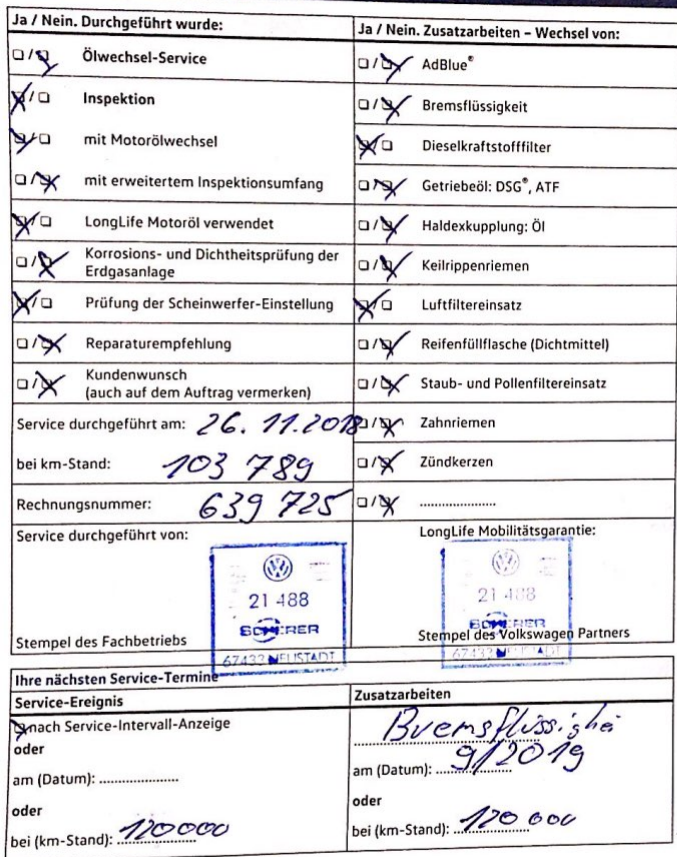 Ja / Nein. Durchgeführt wurde:
Ölwechsel-Service
Inspektion
mit Motorölwechsel
mit erweitertem Inspektionsumfang
LongLife Motoröl verwendet
Korrosions- und Dichtheitsprüfung der
Erdgasanlage
Prüfung der Scheinwerfer-Einstellung
Reparaturempfehlung
Kundenwunsch
(auch auf dem Auftrag vermerken)
Service durchgeführt am: 26. 11. 2018
bei km-Stand: 103 789
Rechnungsnummer: 639 725
Service durchgeführt von:
21 488
SCHERER
67433 NEUSTADT
Stempel des Fachbetriebs
Ja / Nein. Zusatzarbeiten – Wechsel von:
AdBlue®
Bremsflüssigkeit
Dieselkraftstofffilter
Getriebeöl: DSG®, ATF
Haldexkupplung: Öl
Keilrippenriemen
Luftfiltereinsatz
Reifenfüllflasche (Dichtmittel)
Staub- und Pollenfiltereinsatz
Zahnriemen
Zündkerzen
.....................
LongLife Mobilitätsgarantie:
21 488
SCHERER
67433 NEUSTADT
Stempel des Volkswagen Partners
Ihre nächsten Service-Termine
Service-Ereignis
nach Service-Intervall-Anzeige
oder
am (Datum): .....................
oder
bei (km-Stand): 120000
Zusatzarbeiten
Bremsflüssighei
am (Datum): 9/2019
oder
bei (km-Stand): 120 000